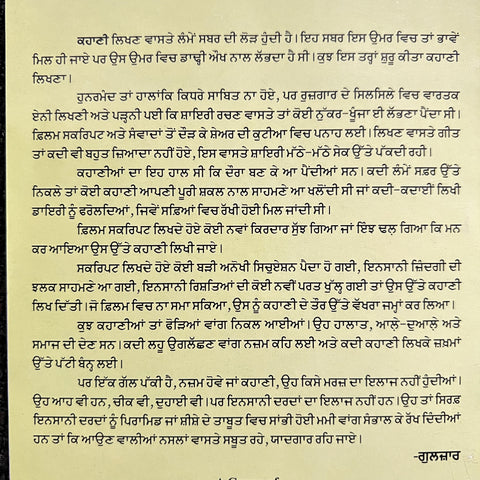 ਕਹਾਣੀ ਲਿਖਣ ਵਾਸਤੇ ਲੰਮੇਂ ਸਬਰ ਦੀ ਲੋੜ ਹੁੰਦੀ ਹੈ। ਇਹ ਸਬਰ ਇਸ ਉਮਰ ਵਿਚ ਤਾਂ ਭਾਵੇਂ
ਮਿਲ ਹੀ ਜਾਏ ਪਰ ਉਸ ਉਮਰ ਵਿਚ ਡਾਢੀ ਔਖ ਨਾਲ ਲੱਭਦਾ ਹੈ ਸੀ। ਕੁਝ ਇਸ ਤਰ੍ਹਾਂ ਸ਼ੁਰੂ ਕੀਤਾ ਕਹਾਣੀ
ਲਿਖਣਾ।
ਹੁਨਰਮੰਦ ਤਾਂ ਹਾਲਾਂਕਿ ਕਿਧਰੇ ਸਾਬਿਤ ਨਾ ਹੋਏ, ਪਰ ਰੁਜ਼ਗਾਰ ਦੇ ਸਿਲਸਿਲੇ ਵਿਚ ਵਾਰਤਕ
ਏਨੀ ਲਿਖਣੀ ਅਤੇ ਪੜ੍ਹਨੀ ਪਈ ਕਿ ਸ਼ਾਇਰੀ ਰਚਣ ਵਾਸਤੇ ਤਾਂ ਕੋਈ ਨੁੱਕਰ-ਖੂੰਜਾ ਈ ਲੱਭਣਾ ਪੈਂਦਾ ਸੀ।
ਫ਼ਿਲਮ ਸਕਰਿਪਟ ਅਤੇ ਸੰਵਾਦਾਂ ਤੋਂ ਦੌੜ ਕੇ ਸ਼ੇਅਰ ਦੀ ਕੁਟੀਆ ਵਿਚ ਪਨਾਹ ਲਈ। ਲਿਖਣ ਵਾਸਤੇ ਗੀਤ
ਤਾਂ ਕਦੀ ਵੀ ਬਹੁਤ ਜ਼ਿਆਦਾ ਨਹੀਂ ਹੋਏ, ਇਸ ਵਾਸਤੇ ਸ਼ਾਇਰੀ ਮੱਠੇ-ਮੱਠੇ ਸੇਕ ਉੱਤੇ ਪੱਕਦੀ ਰਹੀ।
ਕਹਾਣੀਆਂ ਦਾ ਇਹ ਹਾਲ ਸੀ ਕਿ ਦੌਰਾ ਬਣ ਕੇ ਆ ਪੈਂਦੀਆਂ ਸਨ। ਕਦੀ ਲੰਮੇਂ ਸਫ਼ਰ ਉੱਤੇ
ਨਿਕਲੇ ਤਾਂ ਕੋਈ ਕਹਾਣੀ ਆਪਣੀ ਪੂਰੀ ਸ਼ਕਲ ਨਾਲ ਸਾਹਮਣੇ ਆ ਖਲੋਂਦੀ ਸੀ ਜਾਂ ਕਦੀ-ਕਦਾਈਂ ਲਿਖੀ
ਡਾਇਰੀ ਨੂੰ ਫਰੋਲਦਿਆਂ, ਜਿਵੇਂ ਸਫ਼ਿਆਂ ਵਿਚ ਰੱਖੀ ਹੋਈ ਮਿਲ ਜਾਂਦੀ ਸੀ।
ਫ਼ਿਲਮ ਸਕਰਿਪਟ ਲਿਖਦੇ ਹੋਏ ਕੋਈ ਨਵਾਂ ਕਿਰਦਾਰ ਸੁੱਝ ਗਿਆ ਜਾਂ ਇੰਝ ਢਲ਼ ਗਿਆ ਕਿ ਮਨ
ਕਰ ਆਇਆ ਉਸ ਉੱਤੇ ਕਹਾਣੀ ਲਿਖੀ ਜਾਏ।
ਸਕਰਿਪਟ ਲਿਖਦੇ ਹੋਏ ਕੋਈ ਬੜੀ ਅਨੋਖੀ ਸਿਚੂਏਸ਼ਨ ਪੈਦਾ ਹੋ ਗਈ, ਇਨਸਾਨੀ ਜ਼ਿੰਦਗੀ ਦੀ
ਝਲਕ ਸਾਹਮਣੇ ਆ ਗਈ, ਇਨਸਾਨੀ ਰਿਸ਼ਤਿਆਂ ਦੀ ਕੋਈ ਨਵੀਂ ਪਰਤ ਖੁੱਲ੍ਹ ਗਈ ਤਾਂ ਉਸ ਉੱਤੇ ਕਹਾਣੀ
ਲਿਖ ਦਿੱਤੀ। ਜੋ ਫ਼ਿਲਮ ਵਿਚ ਨਾ ਸਮਾ ਸਕਿਆ, ਉਸ ਨੂੰ ਕਹਾਣੀ ਦੇ ਤੌਰ ਉੱਤੇ ਵੱਖਰਾ ਜਮ੍ਹਾਂ ਕਰ ਲਿਆ।
ਕੁਝ ਕਹਾਣੀਆਂ ਤਾਂ ਫੋੜਿਆਂ ਵਾਂਗ ਨਿਕਲ ਆਈਆਂ। ਉਹ ਹਾਲਾਤ, ਆਲੇ਼-ਦੁਆਲੇ਼ ਅਤੇ
ਸਮਾਜ ਦੀ ਦੇਣ ਸਨ। ਕਦੀ ਲਹੂ ਉਗਲੱਛਣ ਵਾਂਗ ਨਜ਼ਮ ਕਹਿ ਲਈ ਅਤੇ ਕਦੀ ਕਹਾਣੀ ਲਿਖਕੇ ਜ਼ਖ਼ਮਾਂ
ਉੱਤੇ ਪੱਟੀ ਬੰਨ੍ਹ ਲਈ।
ਪਰ ਇੱਕ ਗੱਲ ਪੱਕੀ ਹੈ, ਨਜ਼ਮ ਹੋਵੇ ਜਾਂ ਕਹਾਣੀ, ਉਹ ਕਿਸੇ ਮਰਜ਼ ਦਾ ਇਲਾਜ ਨਹੀਂ ਹੁੰਦੀਆਂ।
ਉਹ ਆਹ ਵੀ ਹਨ, ਚੀਕ ਵੀ, ਦੁਹਾਈ ਵੀ। ਪਰ ਇਨਸਾਨੀ ਦਰਦਾਂ ਦਾ ਇਲਾਜ ਨਹੀਂ ਹਨ। ਉਹ ਤਾਂ ਸਿਰਫ਼
ਇਨਸਾਨੀ ਦਰਦਾਂ ਨੂੰ ਪਿਰਾਮਿਡ ਜਾਂ ਸ਼ੀਸ਼ੇ ਦੇ ਤਾਬੂਤ ਵਿਚ ਸਾਂਭੀ ਹੋਈ ਮਮੀ ਵਾਂਗ ਸੰਭਾਲ ਕੇ ਰੱਖ ਦਿੰਦੀਆਂ
ਹਨ ਤਾਂ ਕਿ ਆਉਣ ਵਾਲੀਆਂ ਨਸਲਾਂ ਵਾਸਤੇ ਸਬੂਤ ਰਹੇ, ਯਾਦਗਾਰ ਰਹਿ ਜਾਏ।
-ਗੁਲਜ਼ਾਰ